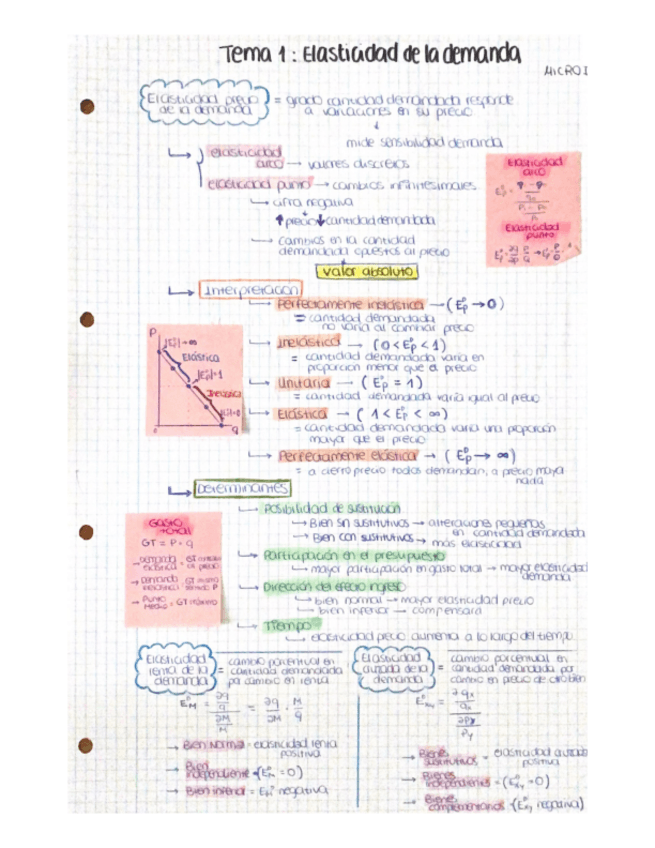 Tema 1: Elasticidad de la demanda
MICRO I
Elasticidad precio de la demanda = grado cantidad demandada responde a variaciones en su precio
↓
mide sensibilidad demanda
elasticidad arco → valores discretos
elasticidad punto → cambios infinitesimales
cifra negativa
↑ precio ↓ cantidad demandada
cambios en la cantidad
demandada opuestos al precio
valor absoluto
Elasticidad
arco
Elasticidad
punto
Interpretación
Perfectamente inelástica → (E → 0)
= cantidad demandada
no varia al cambiar precio
Inelástica → (0 < E < 1)
= cantidad demandada varia en
proporcion menor que el precio
Unitaria → (E = 1)
= cantidad demandada varia igual al precio
Elástica → (1 < E < ∞)
= cantidad demandada varia una proporción
mayor que el precio
Perfectamente elástica → (E → ∞)
= a cierto precio todos demandan, a precio mayor
nada
P
Elástica
Inelástica
q
Determinantes
Posibilidad de sustitución
Bien sin sustitutivos → alteraciones pequeñas
en cantidad demandada
Bien con sustitutivos → más elasticidad
Participación en el presupuesto
mayor participación en gasto total → mayor elasticidad
demanda
Dirección del efecto ingreso
bien normal → mayor elasticidad precio
bien inferior → compensará
Tiempo
elasticidad precio aumenta a lo largo del tiempo
Gasto
total
GT = P · q
Elasticidad renta de la demanda = cambio porcentual en cantidad demandada cambio en renta
→ Bien normal = elasticidad renta
positiva
→ Bien
independiente = (E = 0)
→ Bien inferior = E negativa
Elasticidad cruzada de la demanda = cambio porcentual en cantidad demandada por cambio en precio de otro bien
→ Bienes
sustitutivos = elasticidad cruzada
positiva
→ Bienes
independientes = (E = 0)
→ Bienes
complementarios (E negativa)